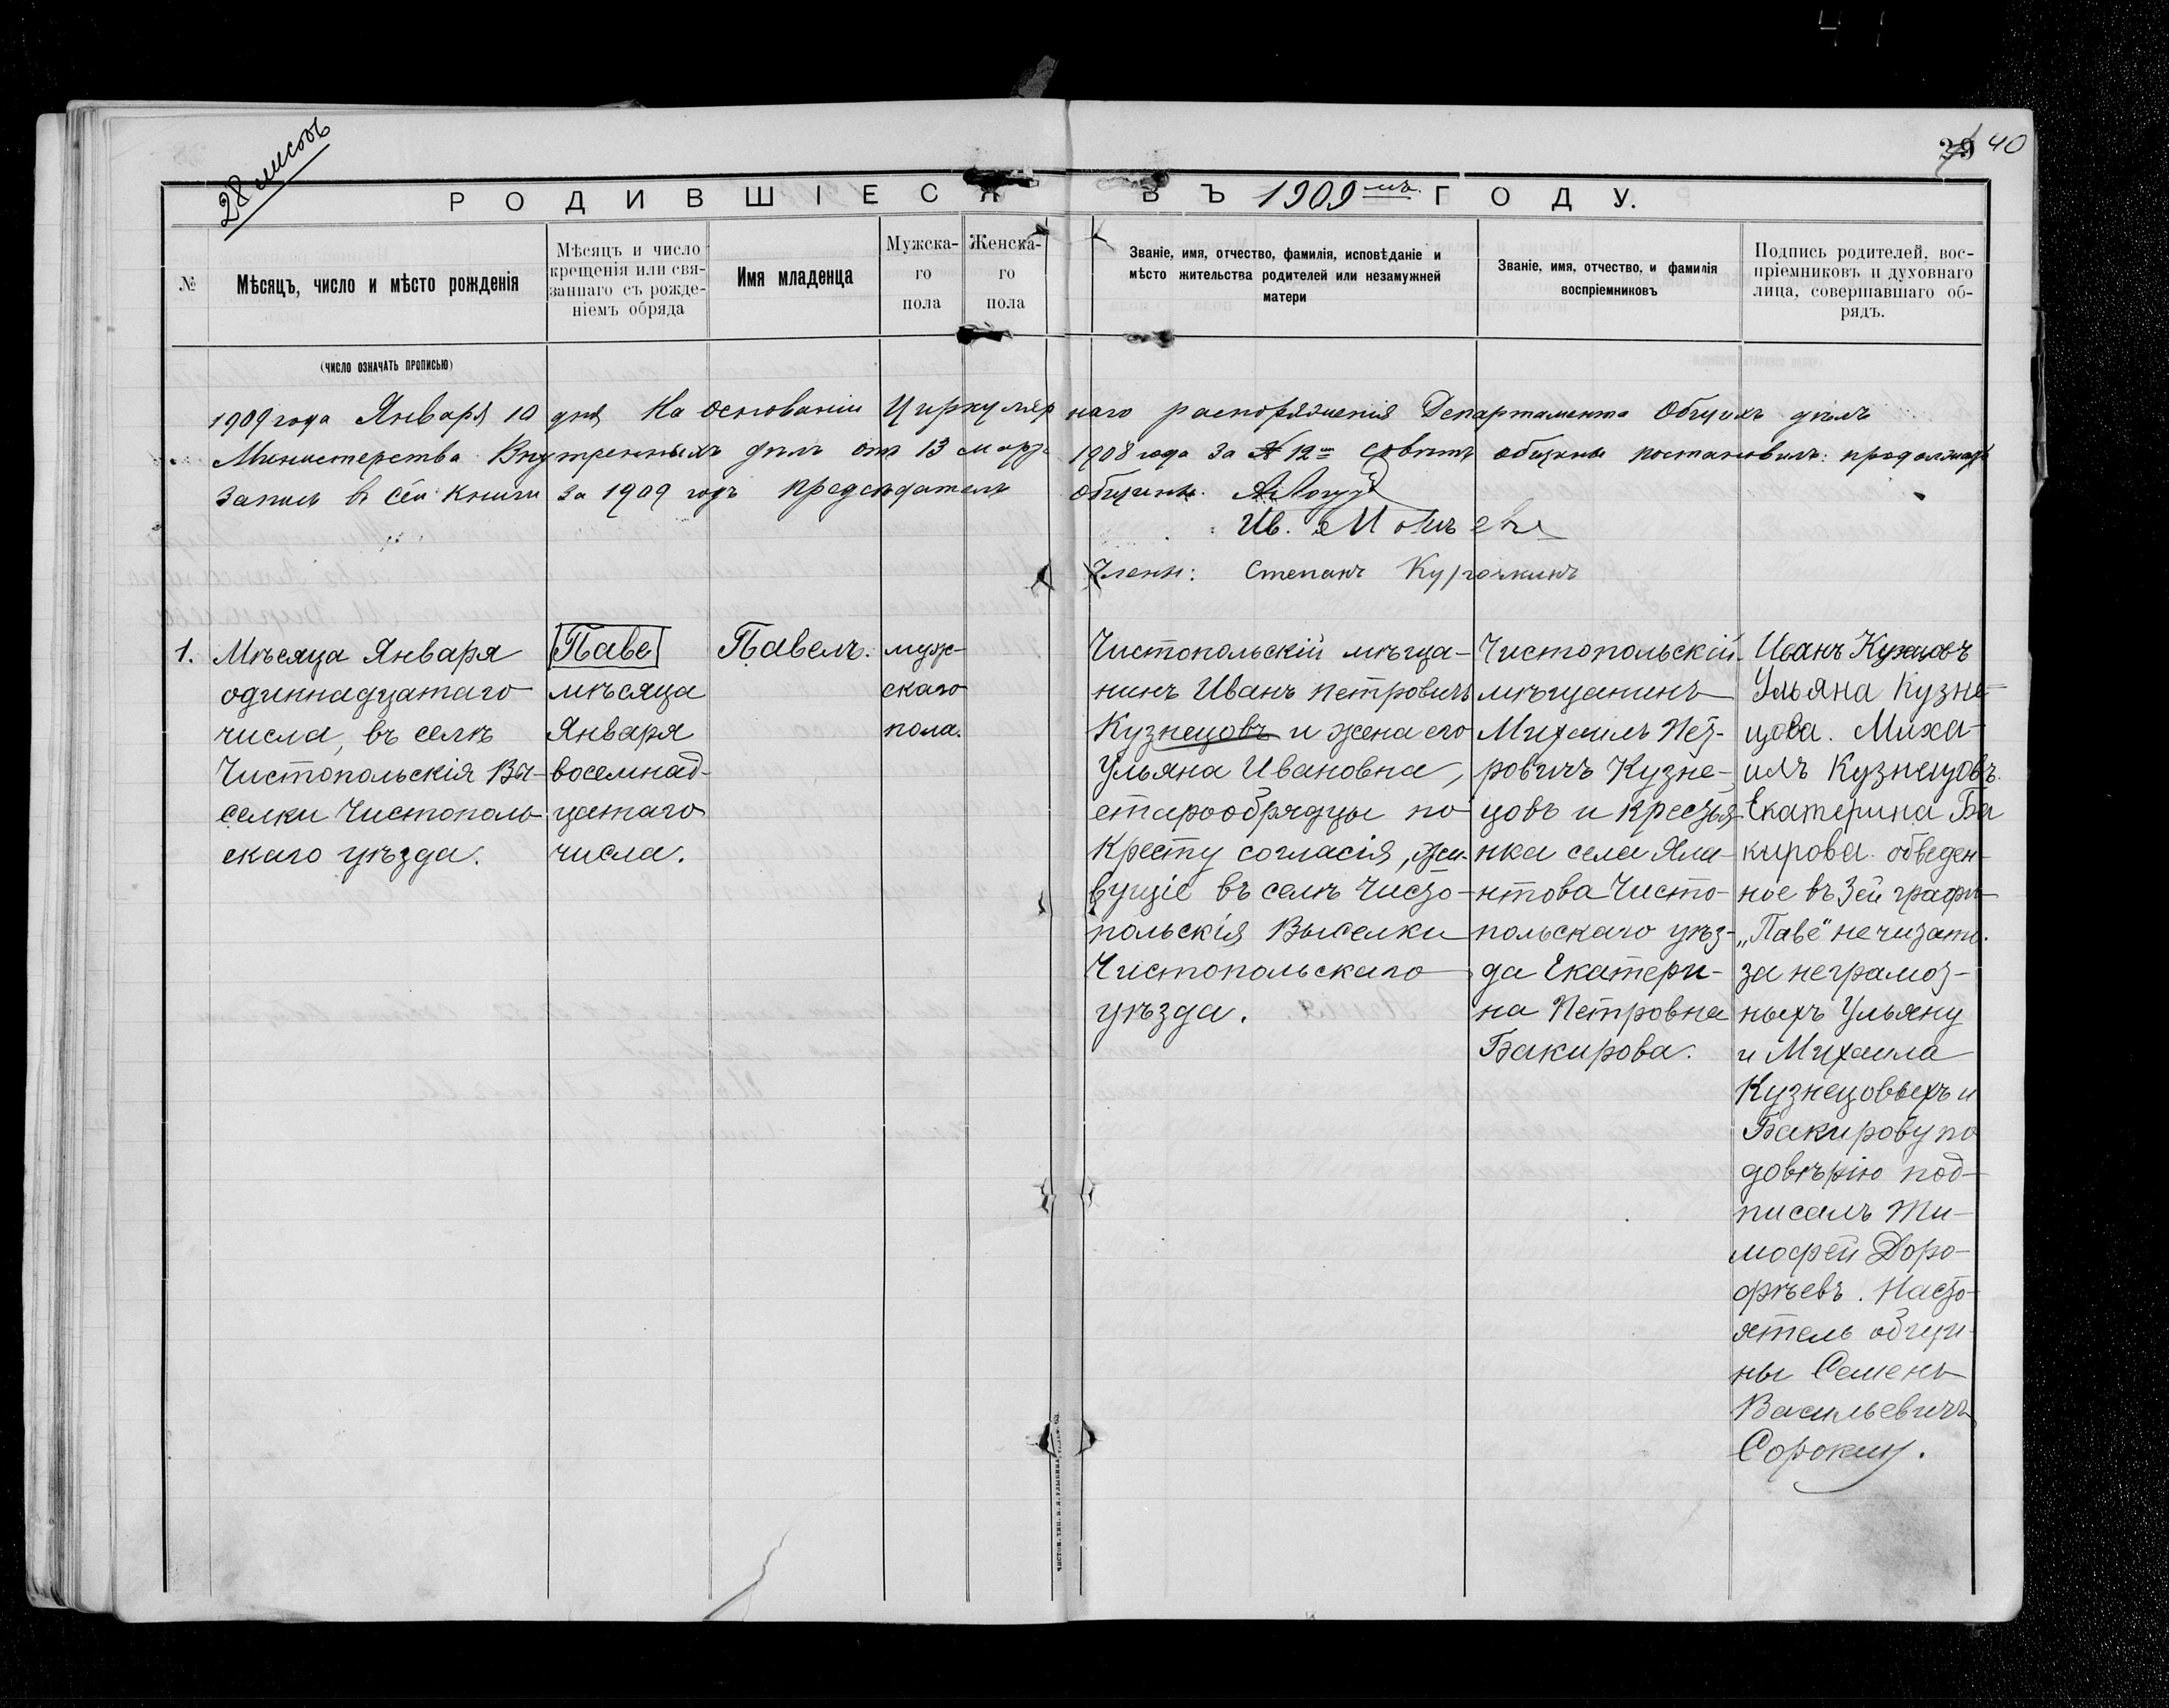 28 листовъ
39 40
РОДИВШІЕСЯ ВЪ 1909мъ ГОДУ.
№
Мѣсяцъ, число и мѣсто рожденія
Мѣсяцъ и число
крещенія или свя-
заннаго съ рожде-
ніемъ обряда
Имя младенца
Мужска-
го
пола
Женска-
го
пола
Званіе, имя, отчество, фамилія, исповѣданіе и
мѣсто жительства родителей или незамужней
матери
Званіе, имя, отчество, и фамилія
воспріемниковъ
Подпись родителей, вос-
пріемниковъ и духовнаго
лица, совершавшаго об-
рядъ.
(ЧИСЛО ОЗНАЧАТЬ ПРОПИСЬЮ)
1909 года Января 10 дня На основаніи Циркулярнаго распоряженія Департамента Общихъ дѣлъ
Министерства Внутреннихъ дѣлъ отъ 13 марта 1908 года за № 12 совѣтъ общины постановилъ: продолжать
запись въ сей книги за 1909 годъ предсѣдатель общины.
Ив.
Члены: Степанъ Курочкинъ
1.
Мѣсяца Января
одиннадцатаго
числа, въ селѣ
Чистопольскія Вы-
селки Чистополь-
скаго уѣзда.
Паве
мѣсяца
Января
восемнад-
цатаго
числа.
Павелъ.
муж-
скаго
пола.
Чистопольскій мѣща-
нинъ Иванъ Петровичъ
Кузнецовъ и жена его
Ульяна Ивановна,
старообрядцы по
Кресту согласія, жи-
вущіе въ селѣ Чисто-
польскія Выселки
Чистопольскаго
уѣзда.
Чистопольскій
мѣщанинъ
Михаилъ Пет-
ровичъ Кузне-
цовъ и крестья-
нка села Яла-
нтова Чисто-
польскаго уѣз-
да Екатери-
на Петровна
Бакирова.
Иванъ
Ульяна Кузне-
цова. Миха-
илъ Кузнецовъ.
Екатерина Ба
кирова. обведен-
ное въ 3ей графѣ
„Паве" не читать.
за неграмот-
ныхъ Ульяну
и Михаила
Кузнецовыхъ и
Бакирову по
довѣрію под-
писалъ Ти-
мофей Доро-
фѣевъ. Насто-
ятель общи-
ны Семенъ
Васильевичъ
Сорокин.